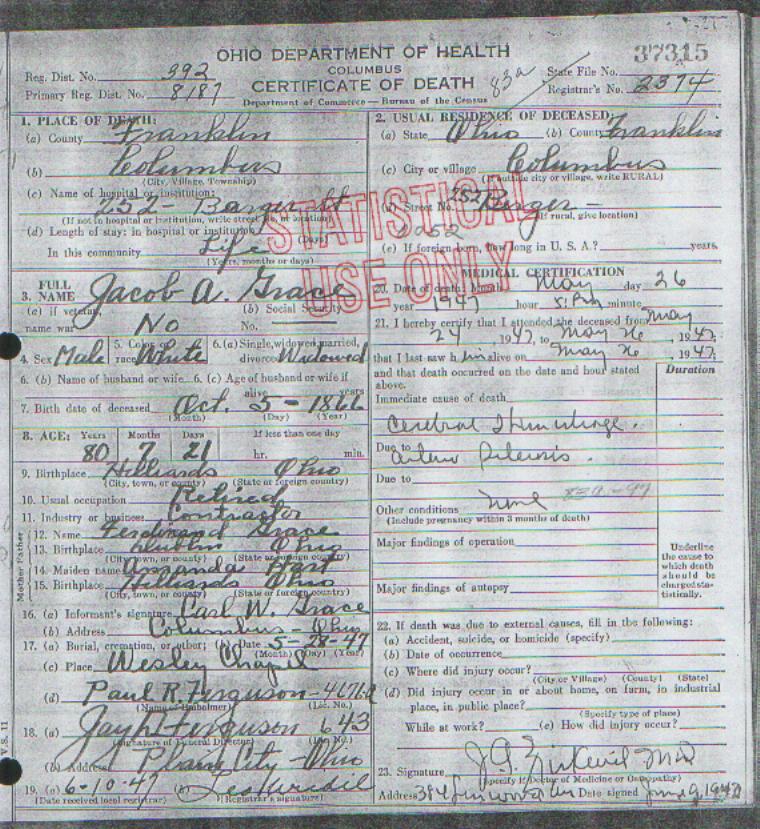 OHIO DEPARTMENT OF HEALTH
COLUMBUS
CERTIFICATE OF DEATH
Department of Commerce — Bureau of the Census
Reg. Dist. No. 392
Primary Reg. Dist. No. 8187
83a
37315
State File No.
Registrar's No. 2374
1. PLACE OF DEATH:
(a) County Franklin
(b) Columbus
(City, Village, Township)
(c) Name of hospital or institution:
252 Barger St
(If not in hospital or institution, write street No. or location)
(d) Length of stay: in hospital or institution
(Days)
In this community Life
(Years, months or days)
2. USUAL RESIDENCE OF DECEASED:
(a) State Ohio (b) County Franklin
(c) City or village Columbus
(If outside city or village, write RURAL)
(d) Street No. 252 Berger
(If rural, give location)
(e) If foreign born, how long in U. S. A.? years.
STATISTICAL
USE ONLY
3. FULL NAME Jacob A. Grace
(a) If veteran, name war No
(b) Social Security No.
4. Sex Male
5. Color or race White
6. (a) Single, widowed, married, divorced Widowed
6. (b) Name of husband or wife
6. (c) Age of husband or wife if alive years
7. Birth date of deceased Oct. 5 - 1866
(Month) (Day) (Year)
8. AGE: Years Months Days If less than one day
80 7 21 hr. min.
9. Birthplace Hilliards Ohio
(City, town, or county) (State or foreign country)
10. Usual occupation Retired
11. Industry or business Contractor
Father
12. Name Ferdinand Grace
13. Birthplace Dublin Ohio
(City, town, or county) (State or foreign country)
Mother
14. Maiden name Amanda Hart
15. Birthplace Hilliards Ohio
(City, town, or county) (State or foreign country)
16. (a) Informant's signature Carl W. Grace
(b) Address Columbus - Ohio
17. (a) Burial, cremation, or other; (b) Date 5-28-47
(Month) (Day) (Year)
(c) Place Wesley Chapel
(d) Paul R. Ferguson - 4676A
(Name of Embalmer) (Lic. No.)
18. (a) Jay L. Ferguson 643
(Signature of Funeral Director) (Lic. No.)
(b) Address Plain City - Ohio
19. (a) 6-10-47 (b)
(Date received local registrar) (Registrar's signature)
V.S. 11
MEDICAL CERTIFICATION
20. Date of death: Month May day 26
year 1947 hour 5: P.m minute
21. I hereby certify that I attended the deceased from May
24, 1947, to May 26, 1947,
that I last saw him alive on May 26, 1947,
and that death occurred on the date and hour stated above.
Duration
Immediate cause of death
Cerebral Hemorrhage.
Due to Arterio Sclerosis.
Due to
Other conditions None
(Include pregnancy within 3 months of death)
Major findings of operation
Major findings of autopsy
Underline the cause to which death should be charged statistically.
22. If death was due to external causes, fill in the following:
(a) Accident, suicide, or homicide (specify)
(b) Date of occurrence
(c) Where did injury occur?
(City or Village) (County) (State)
(d) Did injury occur in or about home, on farm, in industrial place, in public place?
(Specify type of place)
While at work? (e) How did injury occur?
23. Signature M.D.
(Specify if Doctor of Medicine or Osteopathy)
Address 384 Linwood Av Date signed June 9, 1947